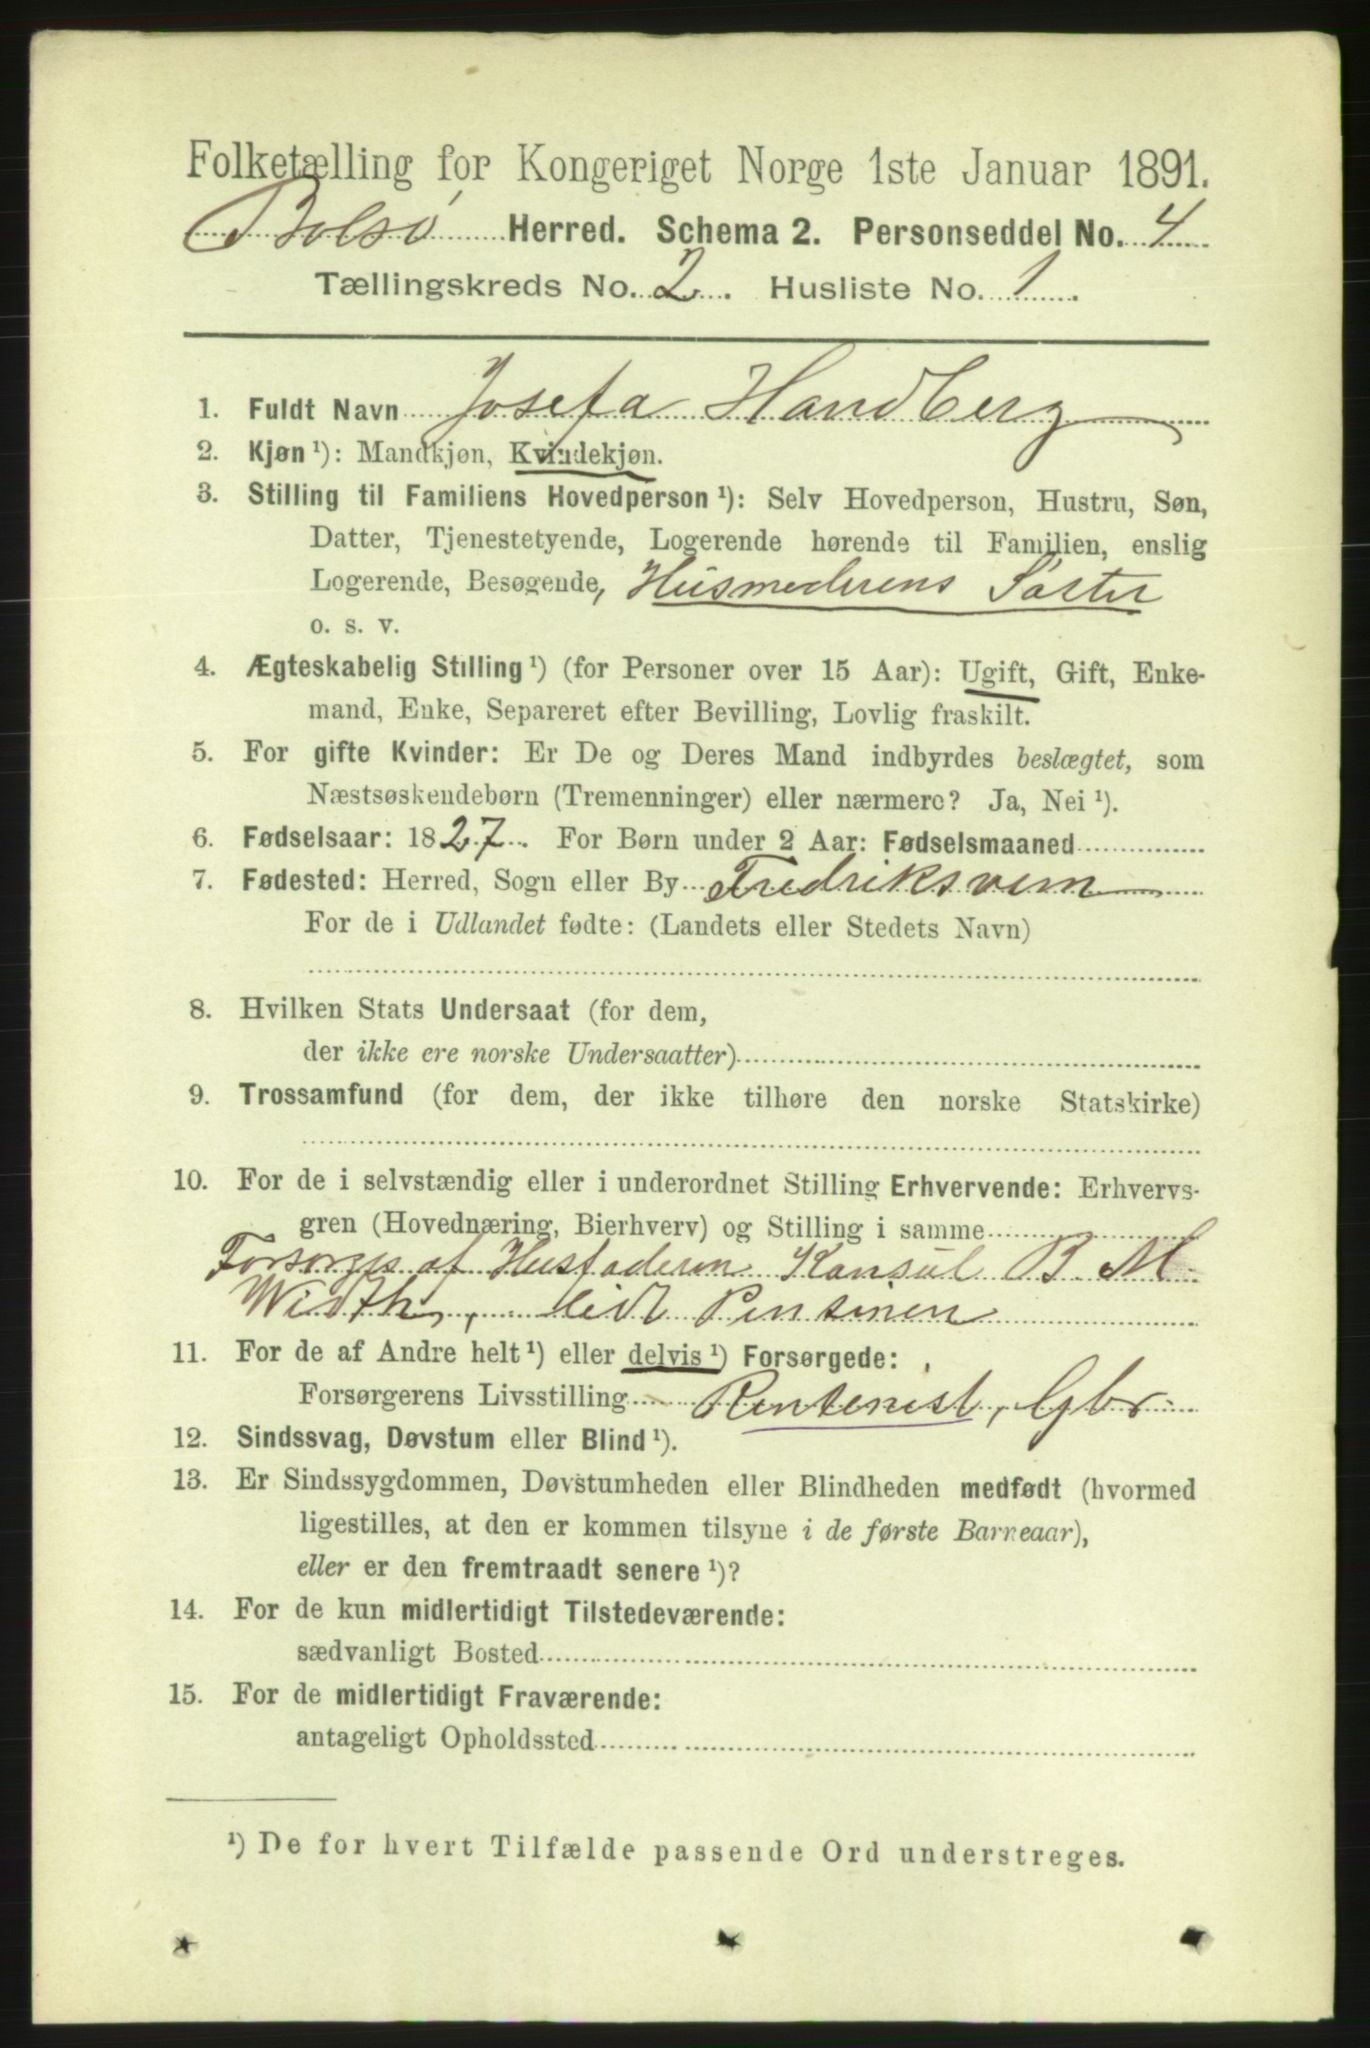 Folketælling for Kongeriget Norge 1ste Januar 1891.
Bolsø Herred. Schema 2. Personseddel No. 4
Tællingskreds No. 2. Husliste No. 1.
1. Fuldt Navn Josefa Handberg
2. Kjøn ¹): Mandkjøn, Kvindekjøn.
3. Stilling til Familiens Hovedperson ¹): Selv Hovedperson, Hustru, Søn,
Datter, Tjenestetyende, Logerende hørende til Familien, enslig
Logerende, Besøgende, Husmoderens Søster
o. s. v.
4. Ægteskabelig Stilling ¹) (for Personer over 15 Aar): Ugift, Gift, Enke-
mand, Enke, Separeret efter Bevilling, Lovlig fraskilt.
5. For gifte Kvinder: Er De og Deres Mand indbyrdes beslægtet, som
Næstsøskendebørn (Tremenninger) eller nærmere? Ja, Nei ¹).
6. Fødselsaar: 1827. For Børn under 2 Aar: Fødselsmaaned
7. Fødested: Herred, Sogn eller By Fredriksvern
For de i Udlandet fødte: (Landets eller Stedets Navn)
8. Hvilken Stats Undersaat (for dem,
der ikke ere norske Undersaatter)
9. Trossamfund (for dem, der ikke tilhøre den norske Statskirke)
10. For de i selvstændig eller i underordnet Stilling Erhvervende: Erhvervs-
gren (Hovednæring, Bierhverv) og Stilling i samme
Forsorges af Husfaderen Konsul B. M.
Width, lidt Pensinen
11. For de af Andre helt ¹) eller delvis ¹) Forsørgede:
Forsørgerens Livsstilling Rentenist, Gbr
12. Sindssvag, Døvstum eller Blind ¹).
13. Er Sindssygdommen, Døvstumheden eller Blindheden medfødt (hvormed
ligestilles, at den er kommen tilsyne i de første Barneaar),
eller er den fremtraadt senere ¹)?
14. For de kun midlertidigt Tilstedeværende:
sædvanligt Bosted
15. For de midlertidigt Fraværende:
antageligt Opholdssted
¹) De for hvert Tilfælde passende Ord understreges.